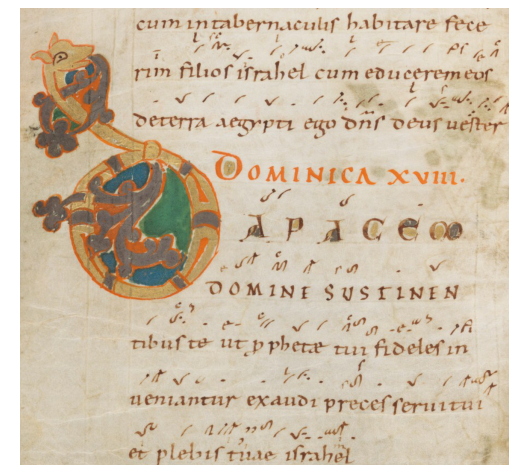 cum intabernaculis habitare fece
rim filios israhel cum educerem eos
deterra aegypti ego dns deus uester
DOMINICA XVIII.
DA PACEM
DOMINE SUSTINEN
tibus te ut p phetæ tui fideles in
ueniantur exaudi preces serui tui
et plebis tuae israhel